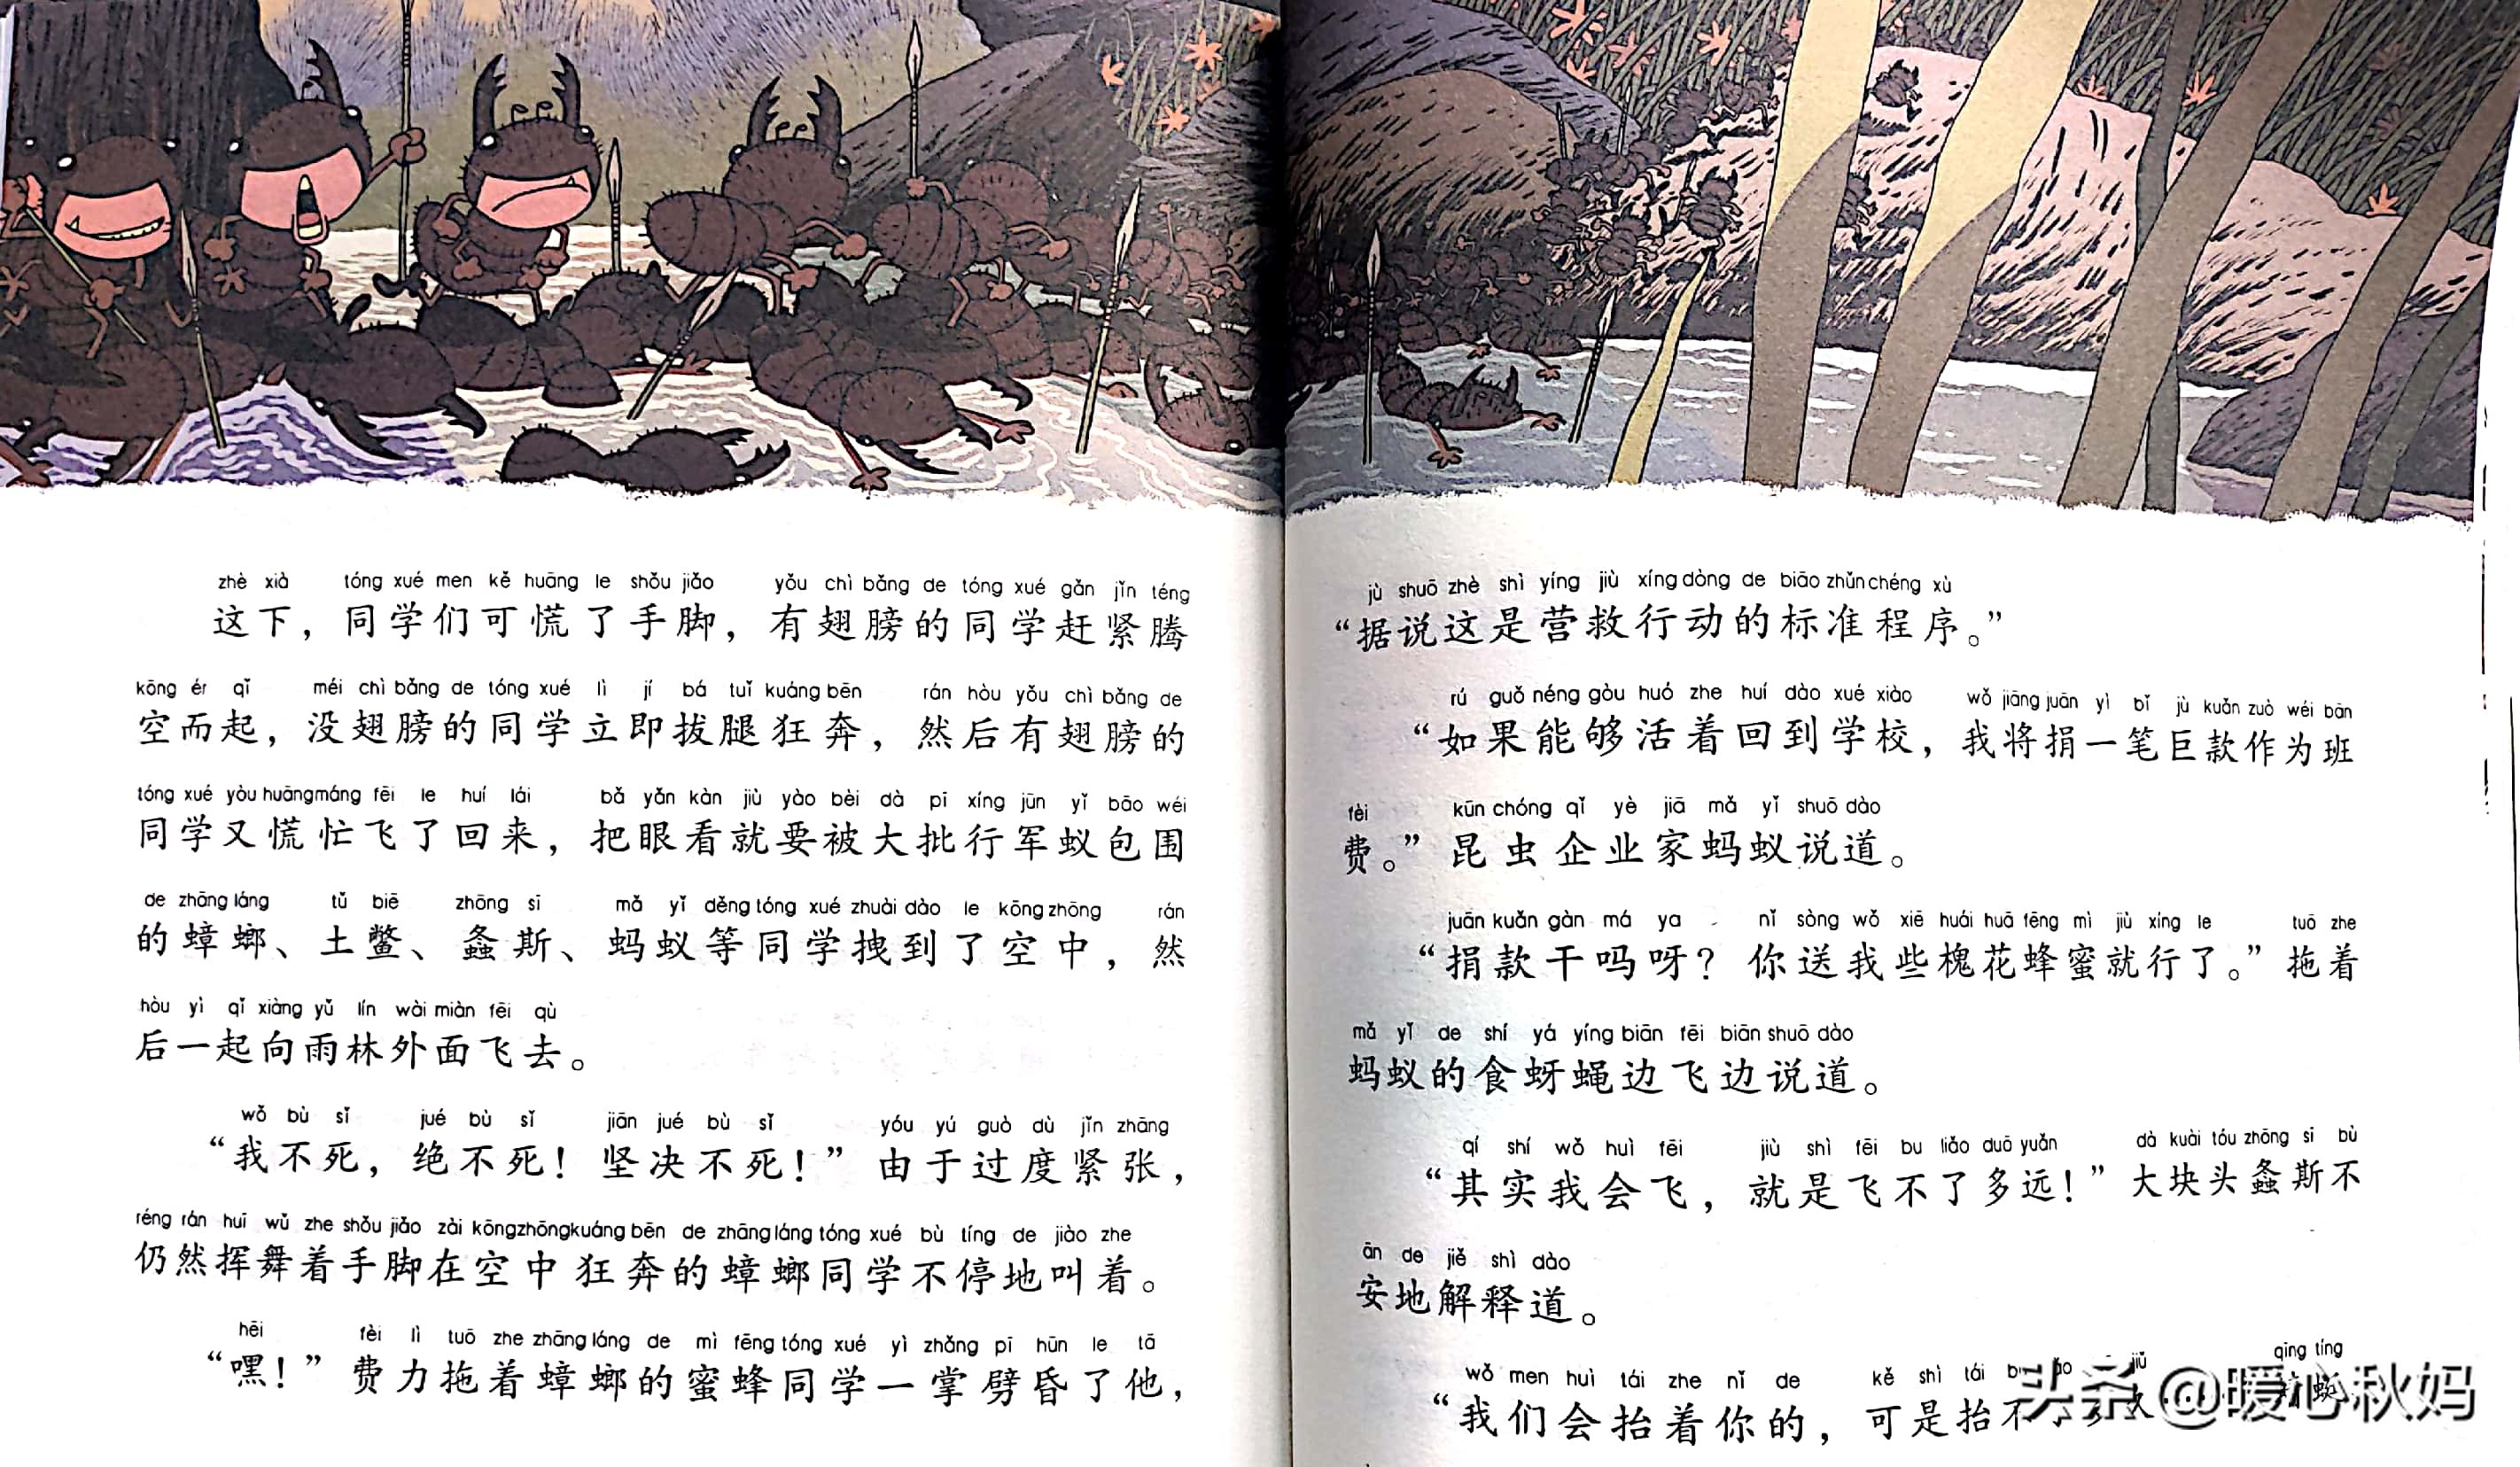 zhè xià tóng xué men kě huāng le shǒu jiǎo yǒu chì bǎng de tóng xué gǎn jǐn téng
这下，同学们可慌了手脚，有翅膀的同学赶紧腾
kōng ér qǐ méi chì bǎng de tóng xué lì jí bá tuǐ kuáng bēn rán hòu yǒu chì bǎng de
空而起，没翅膀的同学立即拔腿狂奔，然后有翅膀的
tóng xué yòu huāng máng fēi le huí lái bǎ yǎn kàn jiù yào bèi dà pī xíng jūn yǐ bāo wéi
同学又慌忙飞了回来，把眼看就要被大批行军蚁包围
de zhāng láng tǔ biē zhōng sī mǎ yǐ děng tóng xué zhuài dào le kōng zhōng rán
的蟑螂、土鳖、螽斯、蚂蚁等同学拽到了空中，然
hòu yì qǐ xiàng yǔ lín wài miàn fēi qù
后一起向雨林外面飞去。
wǒ bù sǐ jué bù sǐ jiān jué bù sǐ yóu yú guò dù jǐn zhāng
“我不死，绝不死！坚决不死！”由于过度紧张，
réng rán huī wǔ zhe shǒu jiǎo zài kōng zhōng kuáng bēn de zhāng láng tóng xué bù tíng de jiào zhe
仍然挥舞着手脚在空中狂奔的蟑螂同学不停地叫着。
hēi fèi lì tuō zhe zhāng láng de mì fēng tóng xué yì zhǎng pī hūn le tā
“嘿！”费力拖着蟑螂的蜜蜂同学一掌劈昏了他，
jù shuō zhè shì yíng jiù xíng dòng de biāo zhǔn chéng xù
“据说这是营救行动的标准程序。”
rú guǒ néng gòu huó zhe huí dào xué xiào wǒ jiāng juān yì bǐ jù kuǎn zuò wéi bān
“如果能够活着回到学校，我将捐一笔巨款作为班
fèi kūn chóng qǐ yè jiā mǎ yǐ shuō dào
费。”昆虫企业家蚂蚁说道。
juān kuǎn gàn má ya nǐ sòng wǒ xiē huái huā fēng mì jiù xíng le tuō zhe
“捐款干吗呀？你送我些槐花蜂蜜就行了。”拖着
mǎ yǐ de shí yá yíng biān fēi biān shuō dào
蚂蚁的食蚜蝇边飞边说道。
qí shí wǒ huì fēi jiù shì fēi bu liǎo duō yuǎn dà kuài tóu zhōng sī bù
“其实我会飞，就是飞不了多远！”大块头螽斯不
ān de jiě shì dào
安地解释道。
wǒ men huì tái zhe nǐ de kě shì tái jiǔ qīng tíng
“我们会抬着你的，可是抬不 久……” 蜻蜓
头条 @暖心秋妈